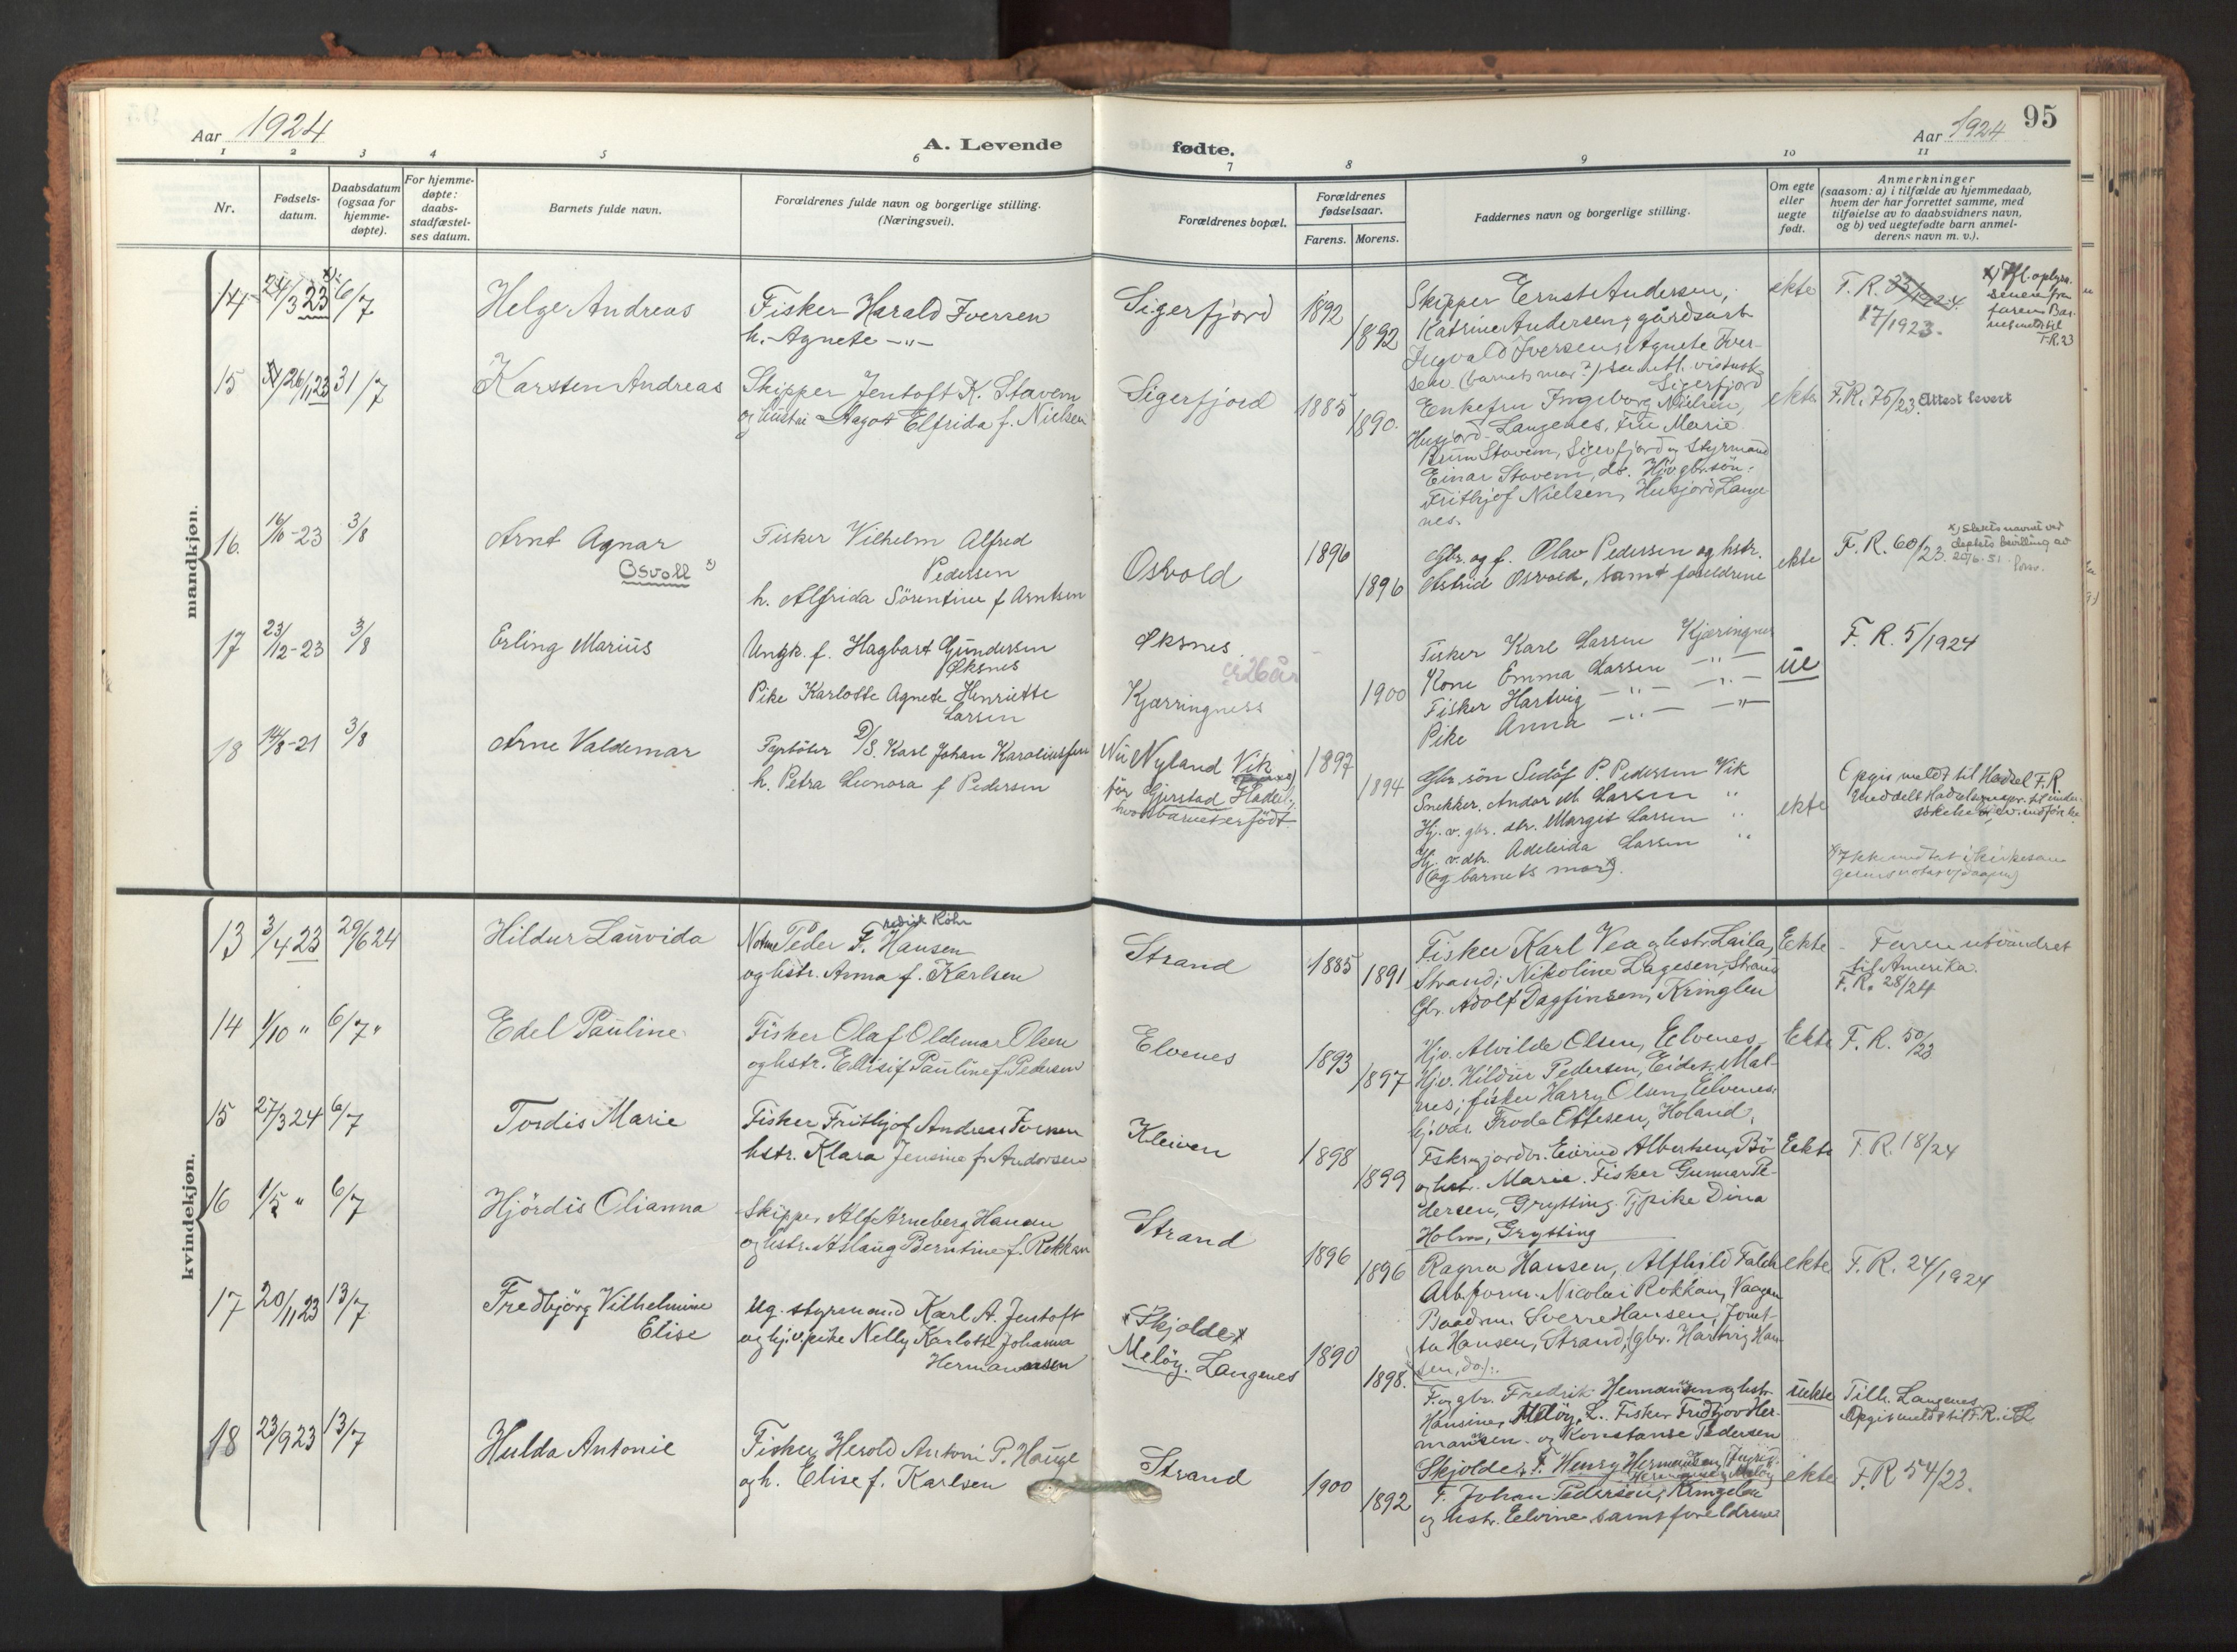 Aar 1924
A. Levende
fødte.
Aar 1924
95
1 2 3 4 5 6 7 8 9 10 11
Nr.
Fødsels-
datum.
Daabsdatum
(ogsaa for
hjemme-
døpte).
For hjemme-
døpte:
daabs-
stadfæstel-
ses datum.
Barnets fulde navn.
Forældrenes fulde navn og borgerlige stilling.
(Næringsvei).
Forældrenes bopæl.
Forældrenes
fødselsaar.
Farens. Morens.
Faddernes navn og borgerlige stilling.
Om egte
eller
uegte
født.
Anmerkninger
(saasom: a) i tilfælde av hjemmedaab,
hvem der har forrettet samme, med
tilføielse av to daabsvidners navn,
og b) ved uegtefødte barn anmel-
derens navn m. v.).
mandkjøn.
14 24/3 23 x) 6/7
Helge Andreas
Fisker Harald Iversen
h. Agnete -"-
Sigerfjord
1892
1892
Skipper Ernst Andersen,
Katrine Andersen, gårdsarb.
Ingvald Iversen, Agnete Iver-
sen (barnets mor?)
Sigerfjord
ekte
F. R. 33/1924.
17/1923.
15 26/11 23 31/7
Karsten Andreas
Skipper Jentoft K. Stavem
og hustru Aagot Elfrida f. Nielsen
Sigerfjord
1885
1890.
Enkefru Ingeborg Nielsen,
Husjord Langenes, Fru Marie
Bruun Stavem, Sigerfjord og Styrmand
Einar Stavem, do. Hjv gbr. søn.
Frithjof Nielsen, Husjord Lange
nes.
ekte
F.R. 75/23. Attest levert
16. 16/10-23 3/8
Arnt Agnar
Osvoll x)
Fisker Vilhelm Alfred
Pedersen
h. Alfrida Sörentine f Arntsen
Osvold
1896
1896
Gbr. og f. Olav Pedersen og hstr.
Astrid Osvold, samt foreldrene
ekte
F. R. 60/23.
x) Slektsnavnet ved
deptets bevilling av
20/6-51.
17 23/12-23 3/8
Erling Marius
Ungk. f. Hagbart Gundersen
Øksnes
Pike Karlotte Agnete Henriette
Larsen
Øksnes
er 26 år
Kjærringness
1900
Fisker Karl Larsen Kjæringnes
Kone Emma Larsen -"-
Fisker Hartvig -"- -"-
Pike Anna -"- -"-
ue
F. R. 5/1924
18 14/8-21 3/8
Arne Valdemar
Fyrböter D/S. Karl Johan Karoliussen
h. Petra Leonora f Pedersen
Nu Nyland Vik
før Gjerstad Hadsel,
hvor barnet er født.
1897
1894
Gbr. sön Sedolf P. Pedersen Vik
Snekker. Andor M. Larsen "
Hj. v. gbr. dtr. Margit Larsen "
Hj. v. dtr. Adeleida Larsen "
(og barnets mor x).
ekte
Opgis meldt til Hadsel F.R.
kvindekjøn.
13 3/4 23 29/6 24
Hildur Lauvida
Peder F. Hansen
redrik Röhr
og hstr. Anna f. Karlsen
Strand
1885
1891
Fisker Karl Vea og hstr. Laila,
Strand; Nikoline Dagesen, Strand
Gbr. Adolf Dagfinsen, Kringlen
Eekte
Faren utvandret
til Amerika.
F. R. 28/24
14 1/10 " 6/7 "
Edel Pauline
Fisker Olaf Oldemar Olsen
og hstr. Ellisif Pauline f. Pedersen
Elvenes
1893
1897
Hjv. Alvilde Olsen, Elvenes
Hjv. Hildur Pedersen, Eidet, Mal-
nes; fisker Harry Olsen, Elvenes
hj. vær. Frode Ottesen, Holand.
Ekte
F. R. 50/23
15 27/3 24 6/7
Tordis Marie
Fisker Frithjof Andreas Iversen
hstr. Klara Jensine f. Andersen
Kleiven
1898
1899
Fskr. og jordbr. Eivind Albertsen, Bö
og hstr. Marie. Fisker Gunnar Pe-
dersen, Grytting. Tj pike Dina
Holm, Grytting
Eekte
F. R. 18/24
16 1/5 " 6/7
Hjördis Olianna
Skipper Alf Arneberg Hansen
og hstr. Aslaug Berntine f. Rokkan
Strand
1896
1896
Ragna Hansen, Alfhild Falch
Arb. form. Nicolai Rokkan, Vaagen
Baadsm. Sverre Hansen, Jomf-
Hansen, Strand, (gbr. Hartvig Han
sen, do.):.
ekte
F. R. 24/1924
17 20/11 23 13/7
Fredbjörg Vilhelmine
Elise
Ug. styrmand Karl A. Jentoft
og hjv. pike Nelly Karlotte Johanna
Hermansen
Skjolde
Meløy. Langenes
1890
1898.
F. og gbr. Fredrik Hermansen og hstr.
Hansine, Meløy, L. Fisker Fridtjov Her-
mansen og Konstanse Pedersen
Skjolde, F. Henry Hermansen,
uekte
Tilh. Langenes
Opgis meldt til F.R. i L
18 23/9 23 13/7
Hulda Antonie
Fisker Herold Antoni P. Hauge
og h. Elise f. Karlsen
Strand
1900
1892
F. Johan Pedersen, Kringelen
og hstr. Elvine samt foreldrene
ekte
F.R 54/23.